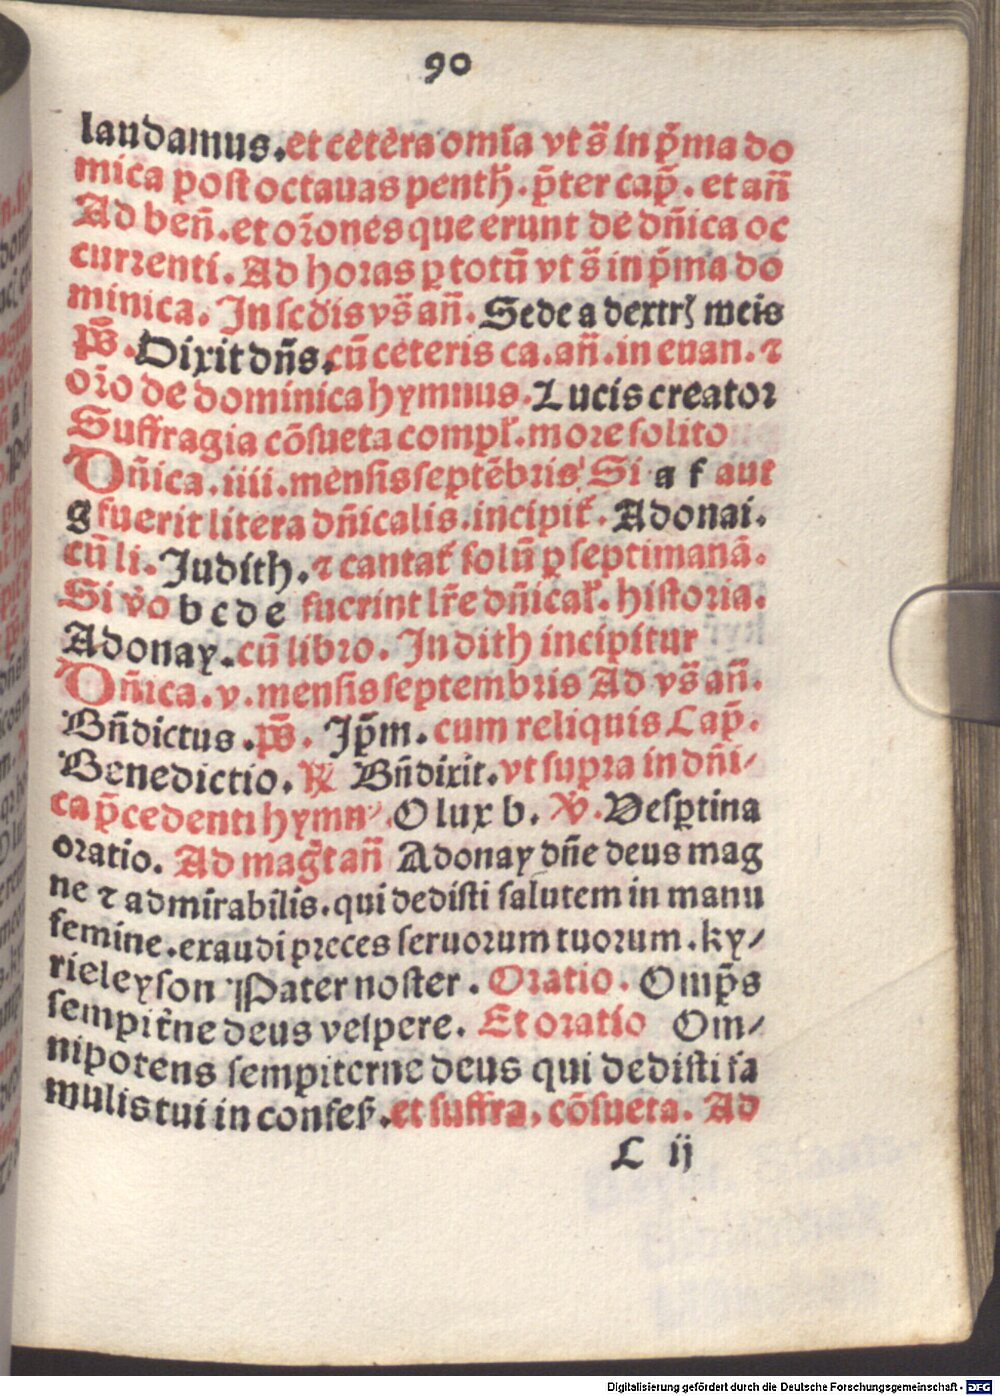 90
laudamus. et cetēra om̄ia vt s̄ in p̄ma do
mica post octauas penth̄. p̄ter cap̄. et añ
Ad beñ. et orōnes que erunt de dñica oc
currenti. Ad horas ꝑ totū vt s̄ in p̄ma do
minica. In scd̄is vs̄ añ. Sede a dextrꝭ meis
ps̄. Dixit dñs. cū ceteris ca. añ. in euan. ⁊
orō de dominica hymnus. Lucis creator
Suffragia cōsueta compl̄. more solito
Dñica. iiii. mensis septēbris Si a f aut
g fuerit litera dñicalis. incipit̄. Adonai.
cū li. Judith. ⁊ cantat̄ solū ꝑ septimanā.
Si v̄o b c d e fuerint lr̄e dñical̄. historia.
Adonay. cū libro. Judith incipitur
Dñica. v. mensis septembris Ad vs̄ añ.
Bñdictus. ps̄. Ip̄m. cum reliquis Cap̄.
Benedictio. ℟ Bñdixit. vt supra in dñi⸗
ca p̄cedenti hymn᾽. O lux b. ℣. Vesꝑtina
oratio. Ad mag̃t añ Adonay dñe deus mag
ne ⁊ admirabilis. qui dedisti salutem in manu
femine. exaudi preces seruorum tuorum. ky⸗
rieleyson Pater noster. Oratio. Omp̄s
sempit̄ne deus vespere. Et oratio Om⸗
nipotens sempiterne deus qui dedisti fa
mulis tui in confeß. et suffra. cōsueta. Ad
L ij
Digitalisierung gefördert durch die Deutsche Forschungsgemeinschaft - DFG